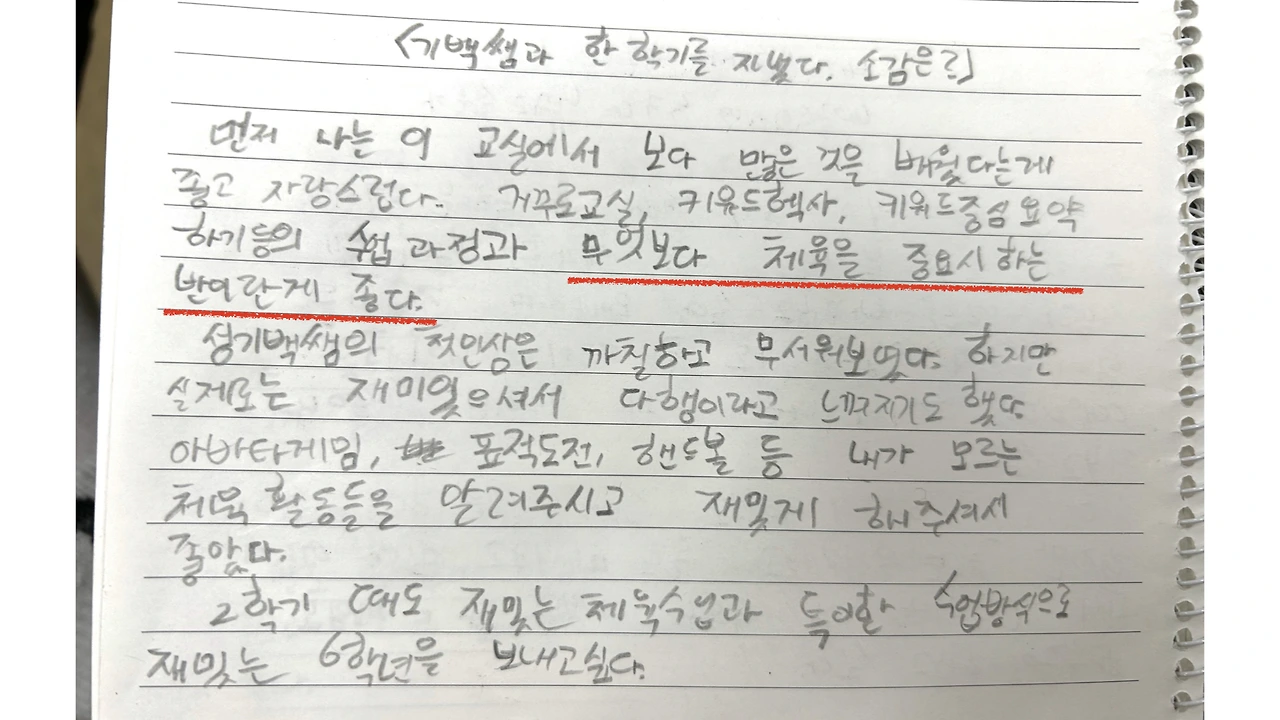 <기백쌤과 한 학기를 지냈다. 소감은?>
먼저 나는 이 교실에서 보다 많은 것을 배웠다는게
좋고 자랑스럽다. 거꾸로교실, 키워드헥사, 키워드중심요약
하기등의 수업과정과 무엇보다 체육을 중요시하는
반이란게 좋다.
성기백쌤의 첫인상은 까칠하고 무서워보였다. 하지만
실제로는 재미있으셔서 다행이라고 느껴지기도 했다.
아바타게임, 표적도전, 핸드볼 등 내가 모르는
체육 활동들을 알려주시고 재밌게 해주셔서
좋았다.
2학기 때도 재밌는 체육수업과 특이한 수업방식으로
재밌는 6학년을 보내고싶다.